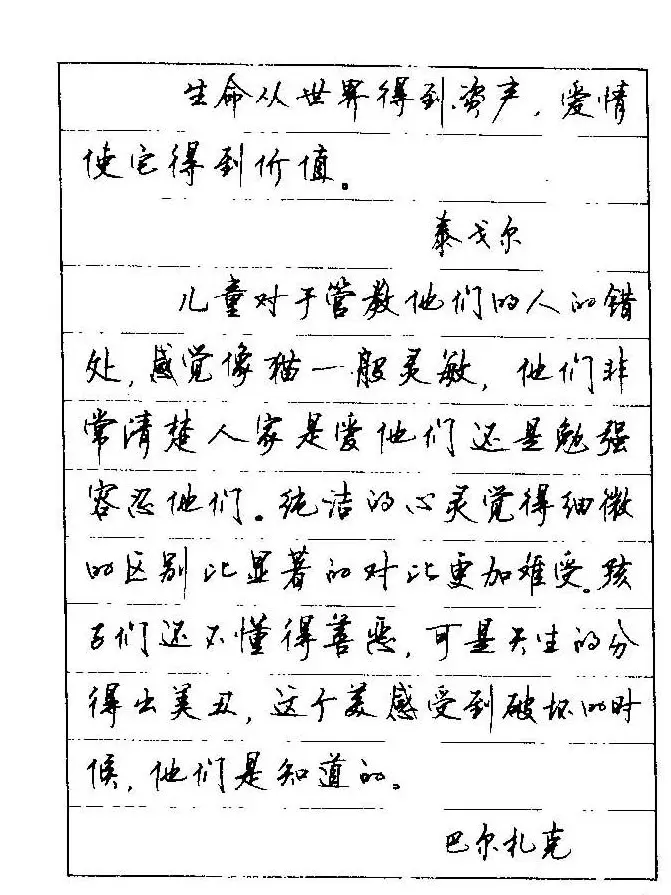 生命从世界得到资声，爱情
使它得到价值。
泰戈尔
儿童对于管教他们的人的错
处，感觉像猫一般灵敏，他们非
常清楚人家是爱他们还是勉强
容忍他们。纯洁的心灵觉得细微
的区别比显著的对比更加难受。孩
子们还不懂得善恶，可是天生的分
得出美丑，这个美感受到破坏的时
候，他们是知道的。
巴尔扎克